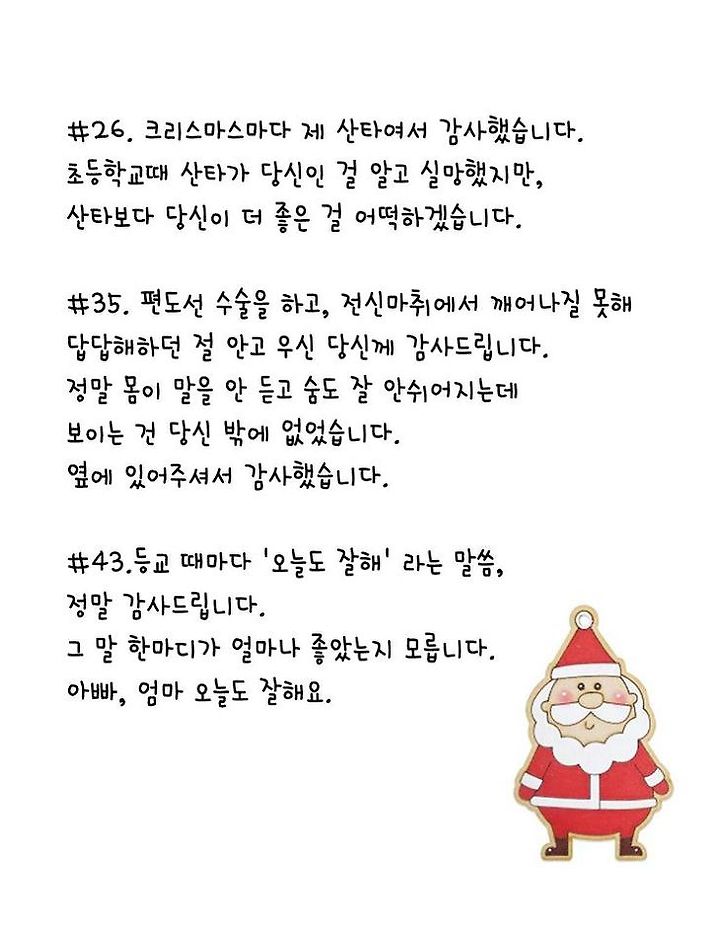 #26. 크리스마스마다 제 산타여서 감사했습니다.
초등학교때 산타가 당신인 걸 알고 실망했지만,
산타보다 당신이 더 좋은 걸 어떡하겠습니다.
#35. 편도선 수술을 하고, 전신마취에서 깨어나질 못해
답답해하던 절 안고 우신 당신께 감사드립니다.
정말 몸이 말을 안 듣고 숨도 잘 안쉬어지는데
보이는 건 당신 밖에 없었습니다.
옆에 있어주셔서 감사했습니다.
#43.등교 때마다 '오늘도 잘해' 라는 말씀,
정말 감사드립니다.
그 말 한마디가 얼마나 좋았는지 모릅니다.
아빠, 엄마 오늘도 잘해요.